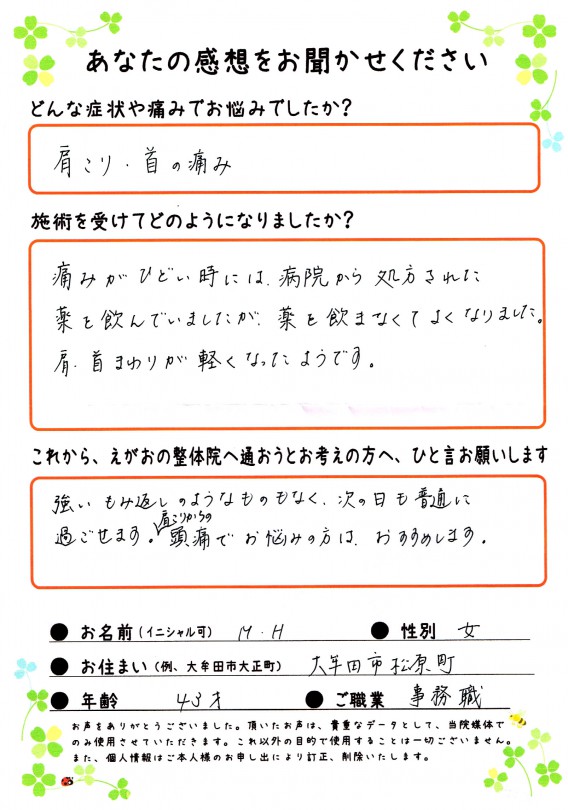 あなたの感想をお聞かせください
どんな症状や痛みでお悩みでしたか?
肩こり・首の痛み
施術を受けてどのようになりましたか?
痛みがひどい時には、病院から処方された
薬を飲んでいましたが、薬を飲まなくてよくなりました。
肩、首まわりが軽くなったようです。
これから、えがおの整体院へ通おうとお考えの方へ、ひと言お願いします
強いもみ返しのようなものもなく、次の日も普通に
過ごせます。肩こりからの頭痛でお悩みの方は、おすすめします。
● お名前(イニシャル可) M・H ● 性別 女
● お住まい(例、大牟田市大正町) 大牟田市松原町
● 年齢 43才 ● ご職業 事務職
お声をありがとうございました。頂いたお声は、貴重なデータとして、当院媒体で
のみ使用させていただきます。これ以外の目的で使用することは一切ございません。
また、個人情報はご本人様のお申し出により訂正、削除いたします。